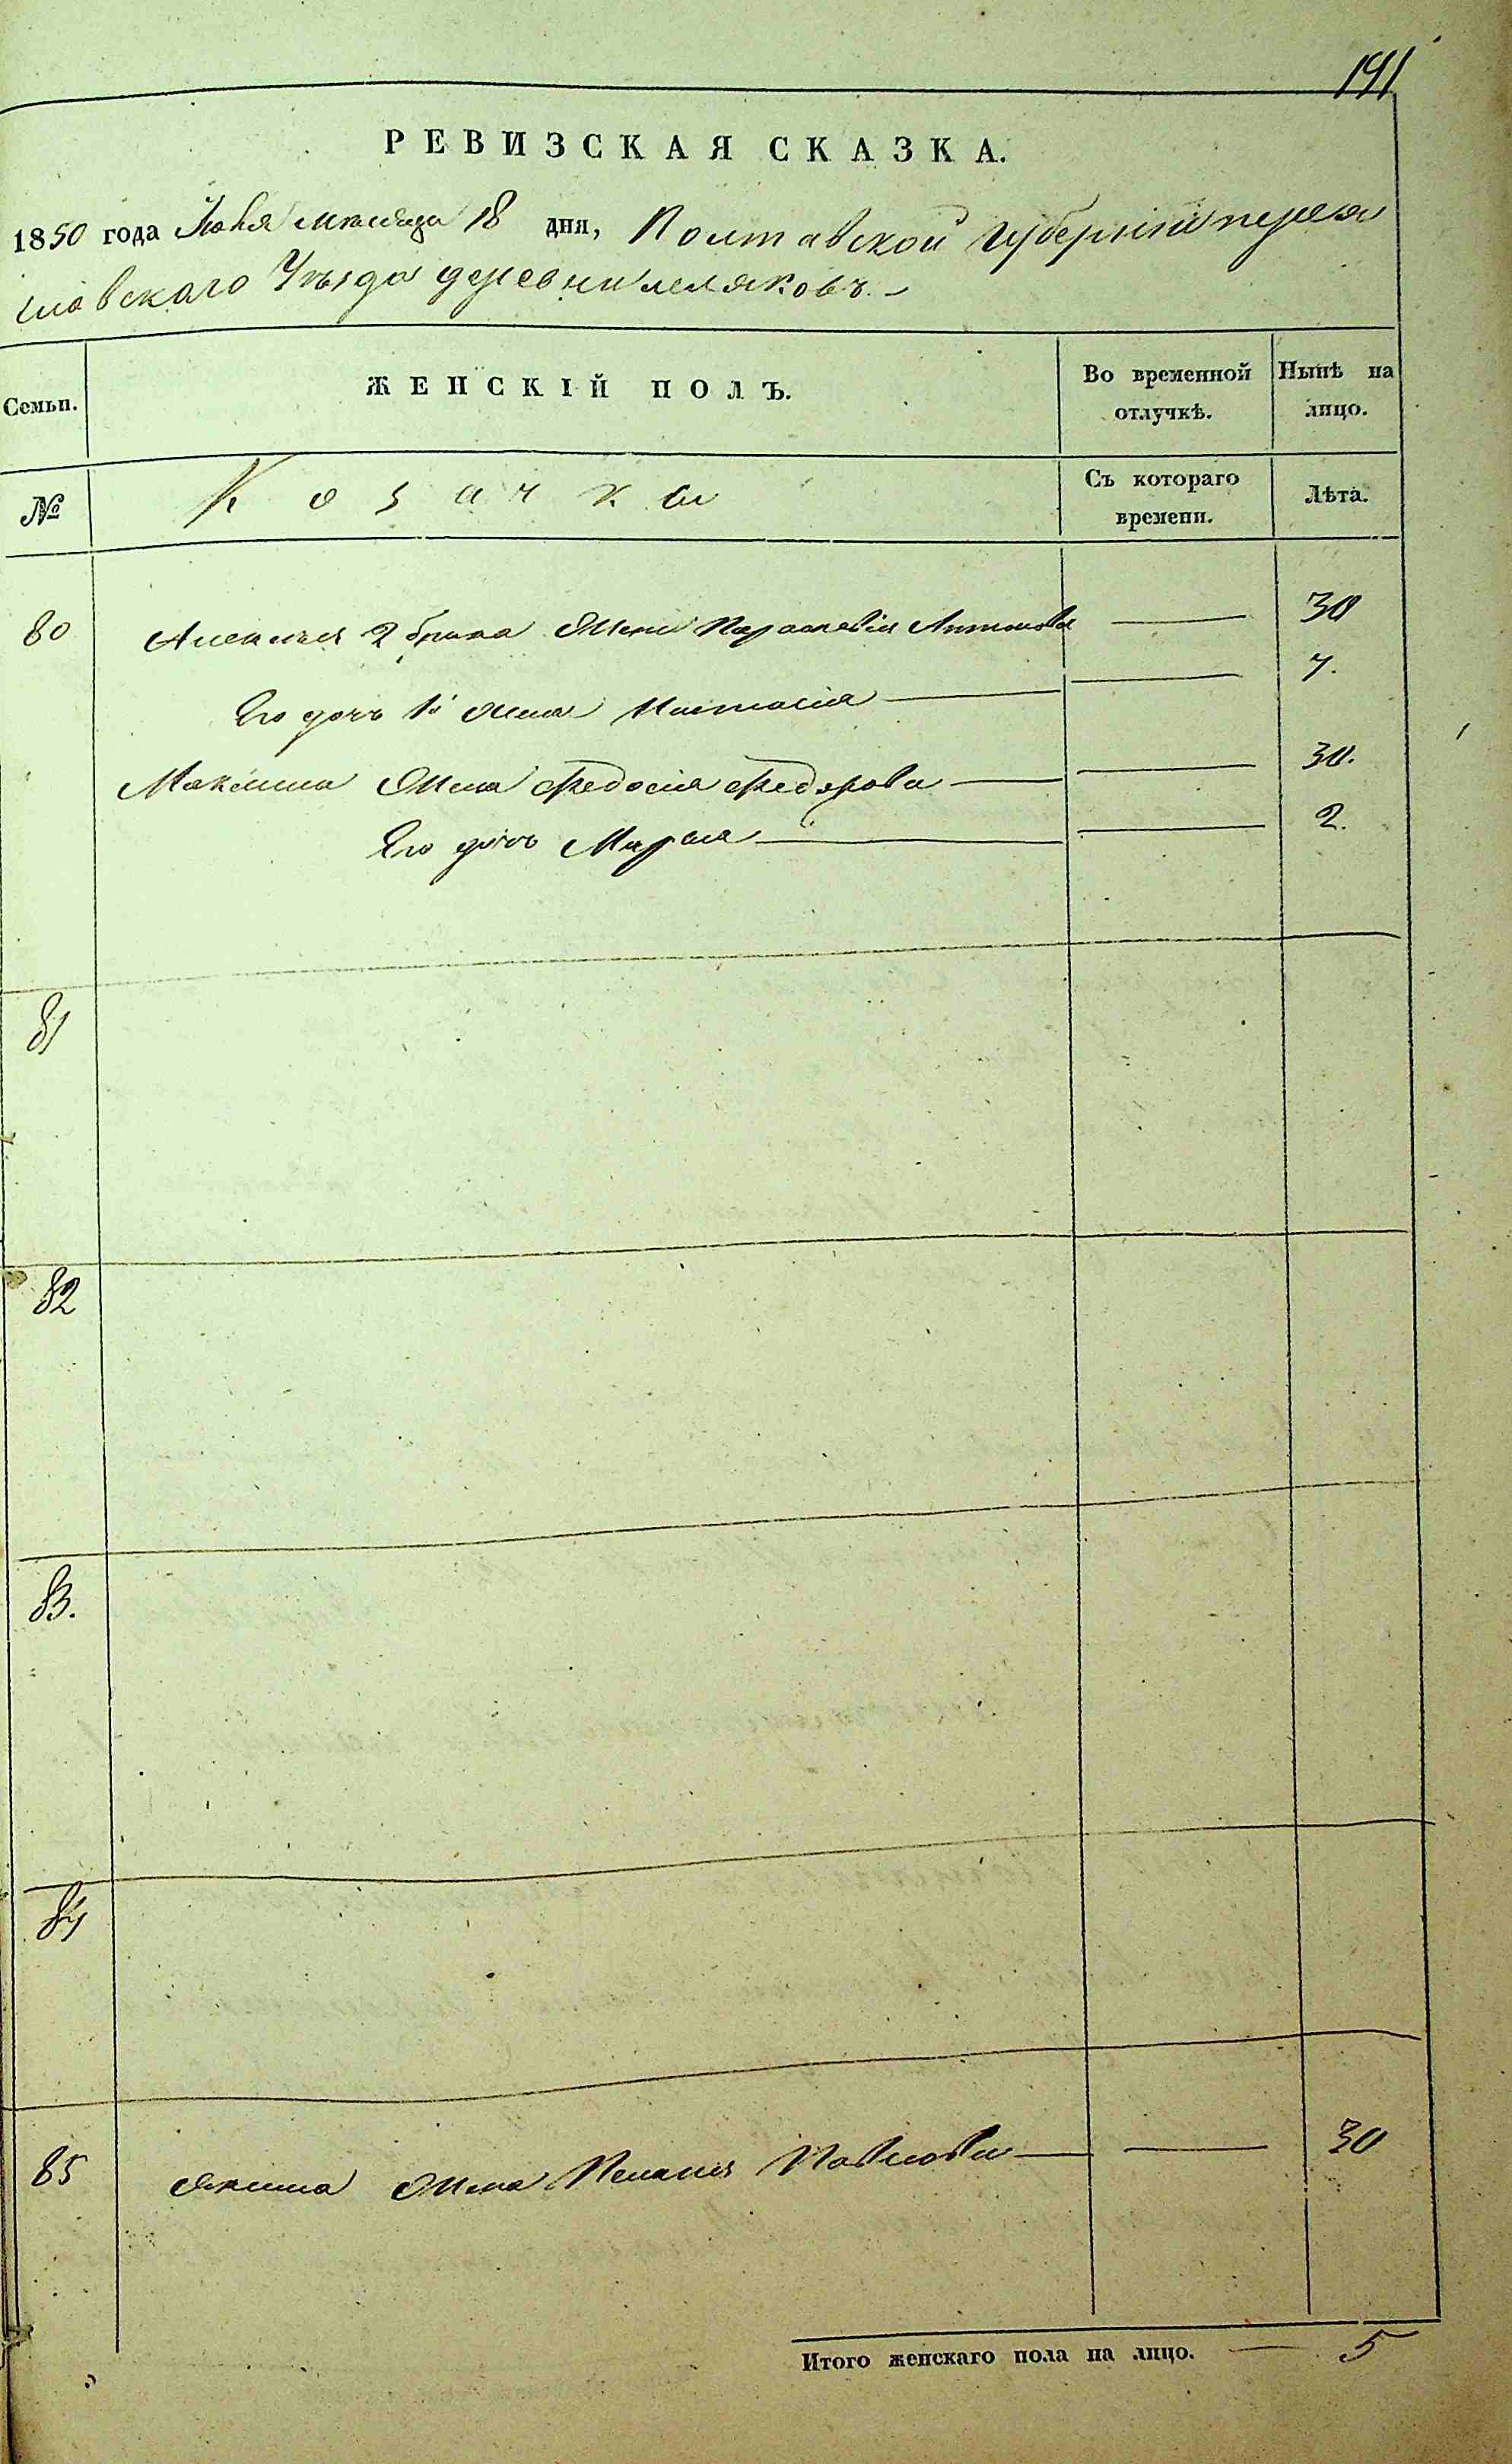 191
РЕВИЗСКАЯ СКАЗКА.
1850 года Июня месяца 18 дня, Полтавской Губернии переяс
лавскаго Уезда деревни леляковъ.
Семьи. ЖЕНСКІЙ ПОЛЪ. Во временной отлучкѣ. Нынѣ на лицо.
№ Козачки Съ котораго времени. Лѣта.
80 Алексея 2 брака жена Параскевія Антонова — 30
Его дочь 1й жены Настасія — 7.
Максима жена Федосія Федорова — 30.
Его дочь Марья — 2.
81
82
83.
84
85 Якима жена Пелагея Павлова — 30
Итого женскаго пола на лицо. — 5